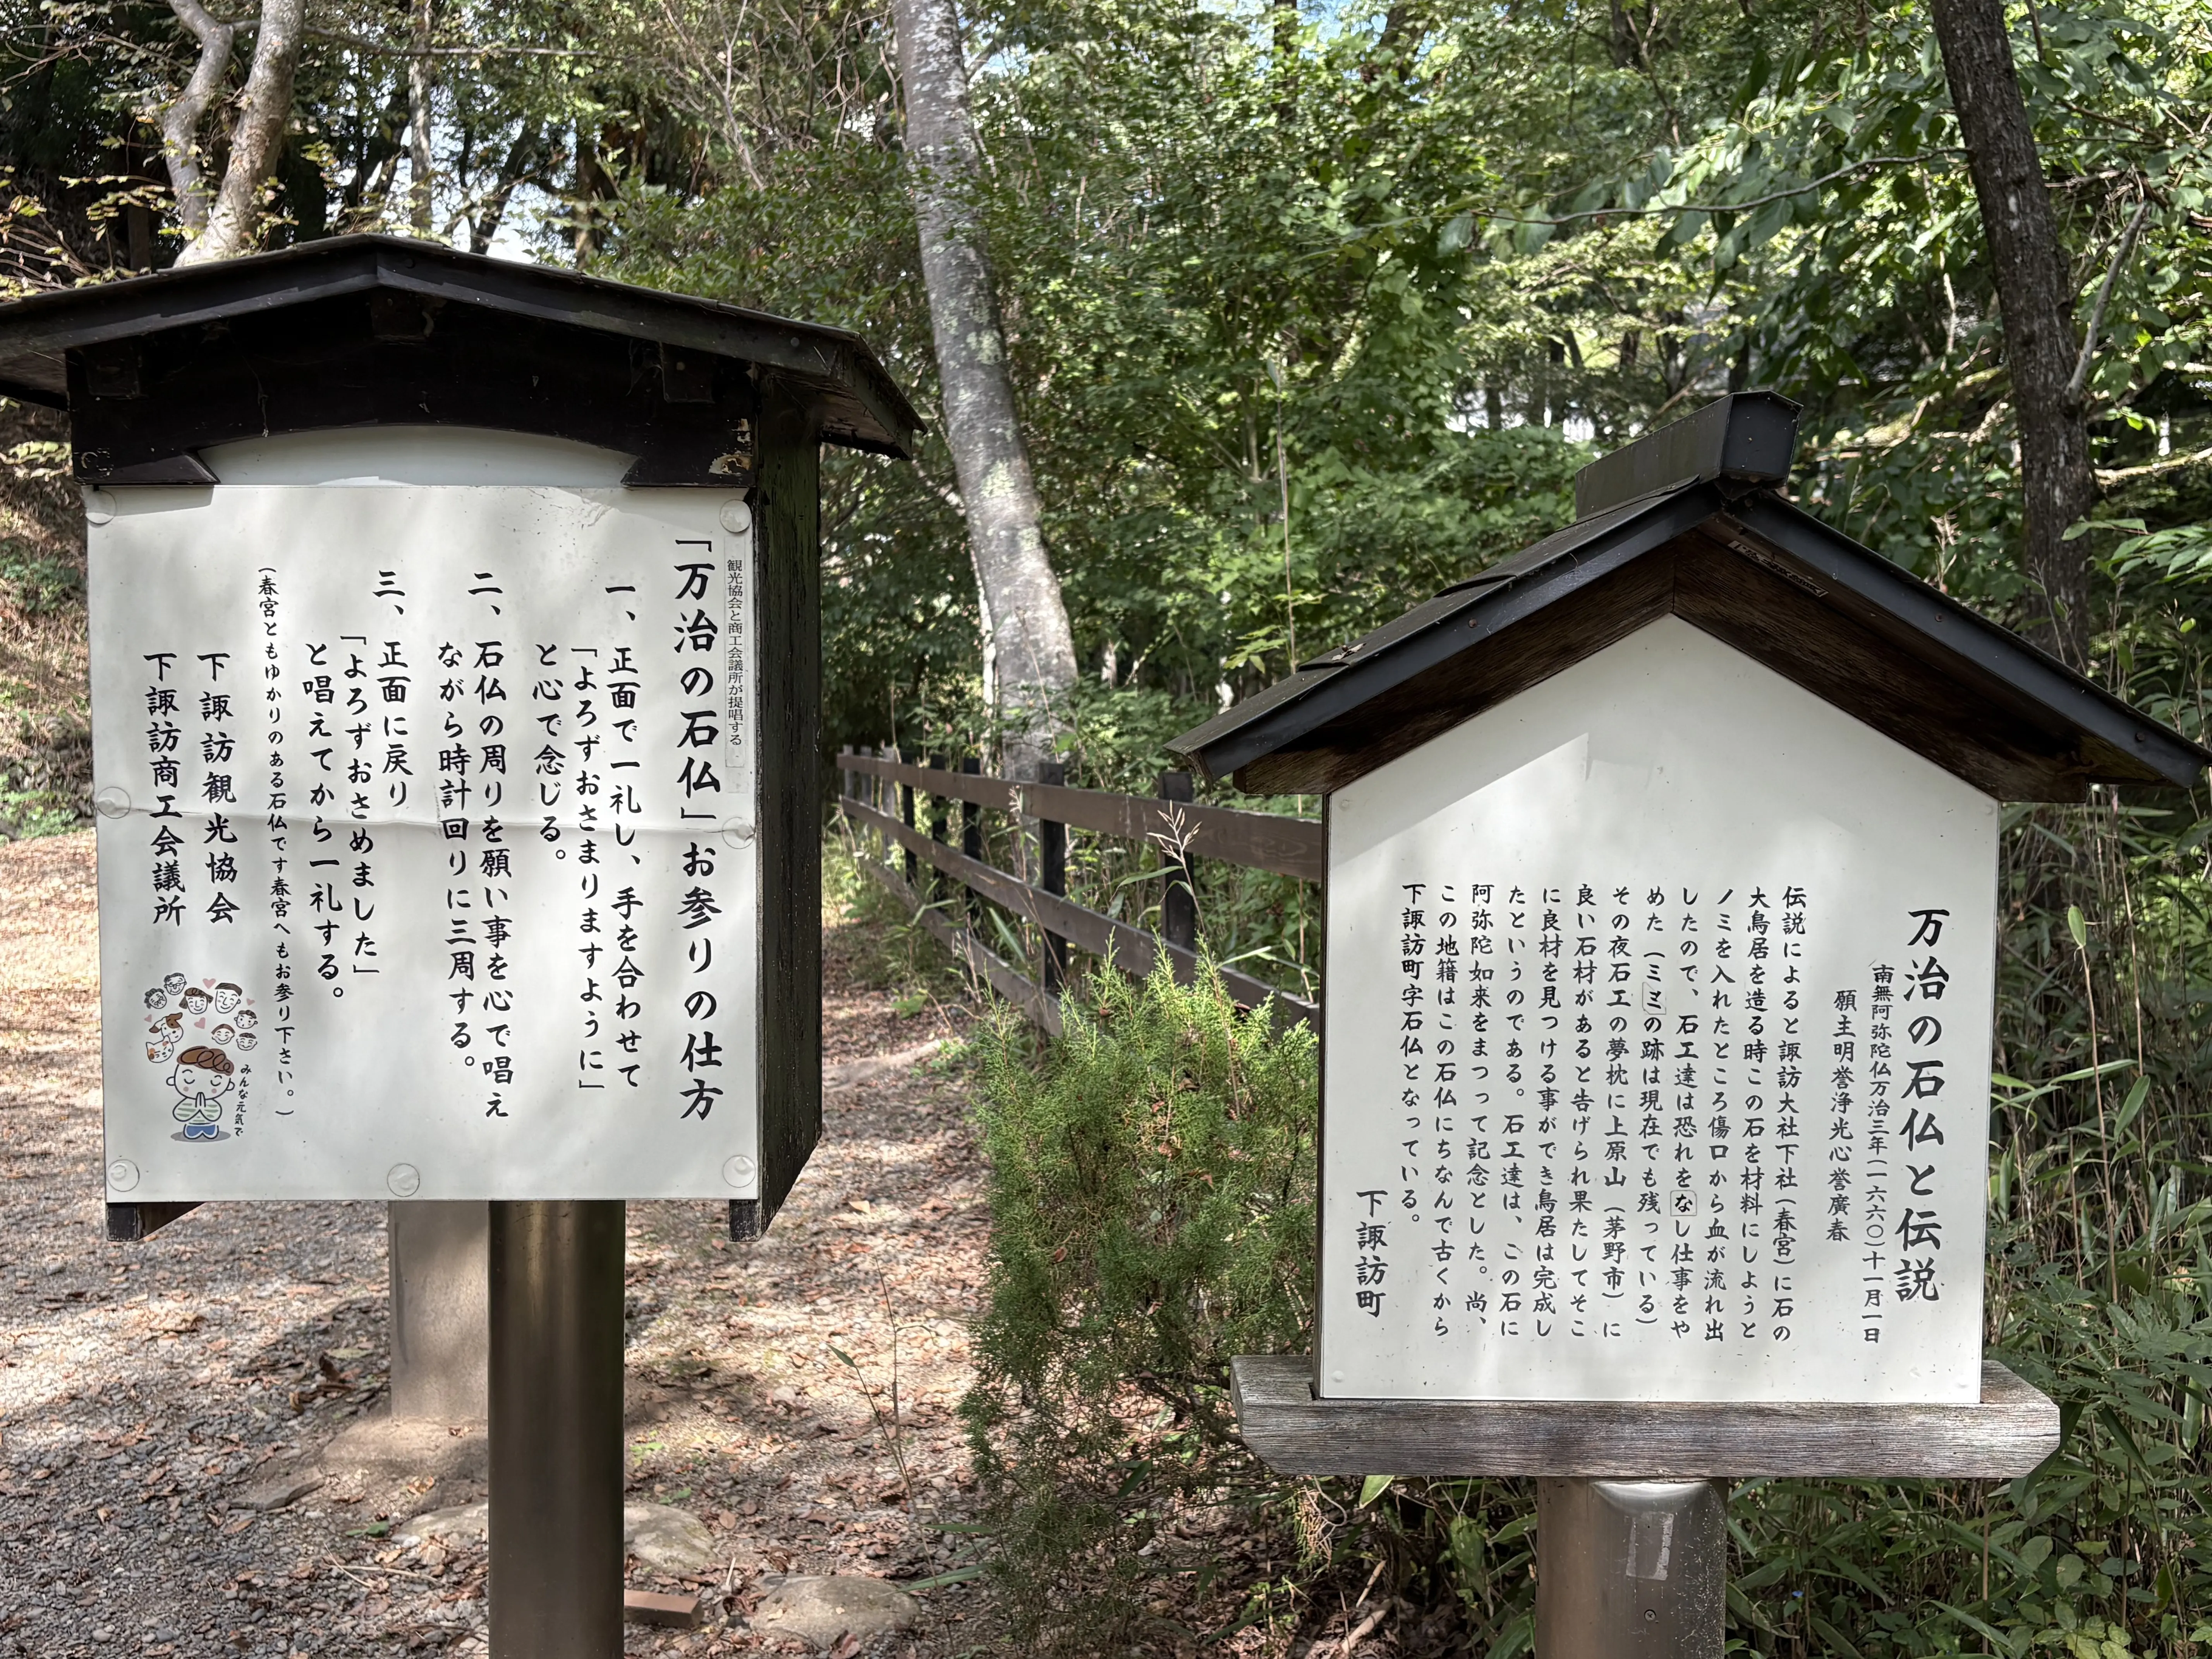 観光協会と商工会議所が提唱する
「万治の石仏」お参りの仕方
一、正面で一礼し、手を合わせて
「よろずおさまりますように」
と心で念じる。
二、石仏の周りを願い事を心で唱え
ながら時計回りに三周する。
三、正面に戻り
「よろずおさめました」
と唱えてから一礼する。
(春宮ともゆかりのある石仏です春宮へもお参り下さい。)
下諏訪観光協会
下諏訪商工会議所
みんな元気で
万治の石仏と伝説
南無阿弥陀仏万治三年(一六六〇)十一月一日
願主明誉浄光心誉廣春
伝説によると諏訪大社下社(春宮)に石の
大鳥居を造る時この石を材料にしようと
ノミを入れたところ傷口から血が流れ出
したので、石工達は恐れをなし仕事をや
めた(ミミの跡は現在でも残っている)
その夜石工の夢枕に上原山(茅野市)に
良い石材があると告げられ果たしてそこ
に良材を見つける事ができ鳥居は完成し
たというのである。石工達は、この石に
阿弥陀如来をまつって記念とした。尚、
この地籍はこの石仏にちなんで古くから
下諏訪町字石仏となっている。
下諏訪町